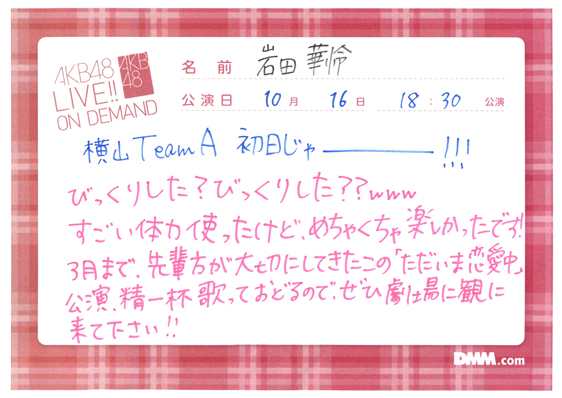 AKB48
LIVE!!
ON DEMAND
AKB
48
名前 岩田 華怜
公演日 10月 16日 18:30 公演
横山TeamA 初日じゃ――――!!!
びっくりした?びっくりした??www
すごい体力使ったけど、めちゃくちゃ楽しかったです!
3月まで、先輩方が大切にしてきたこの「ただいま恋愛中」
公演、精一杯歌っておどるので、ぜひ劇場に観に
来て下さい!!
DMM.com